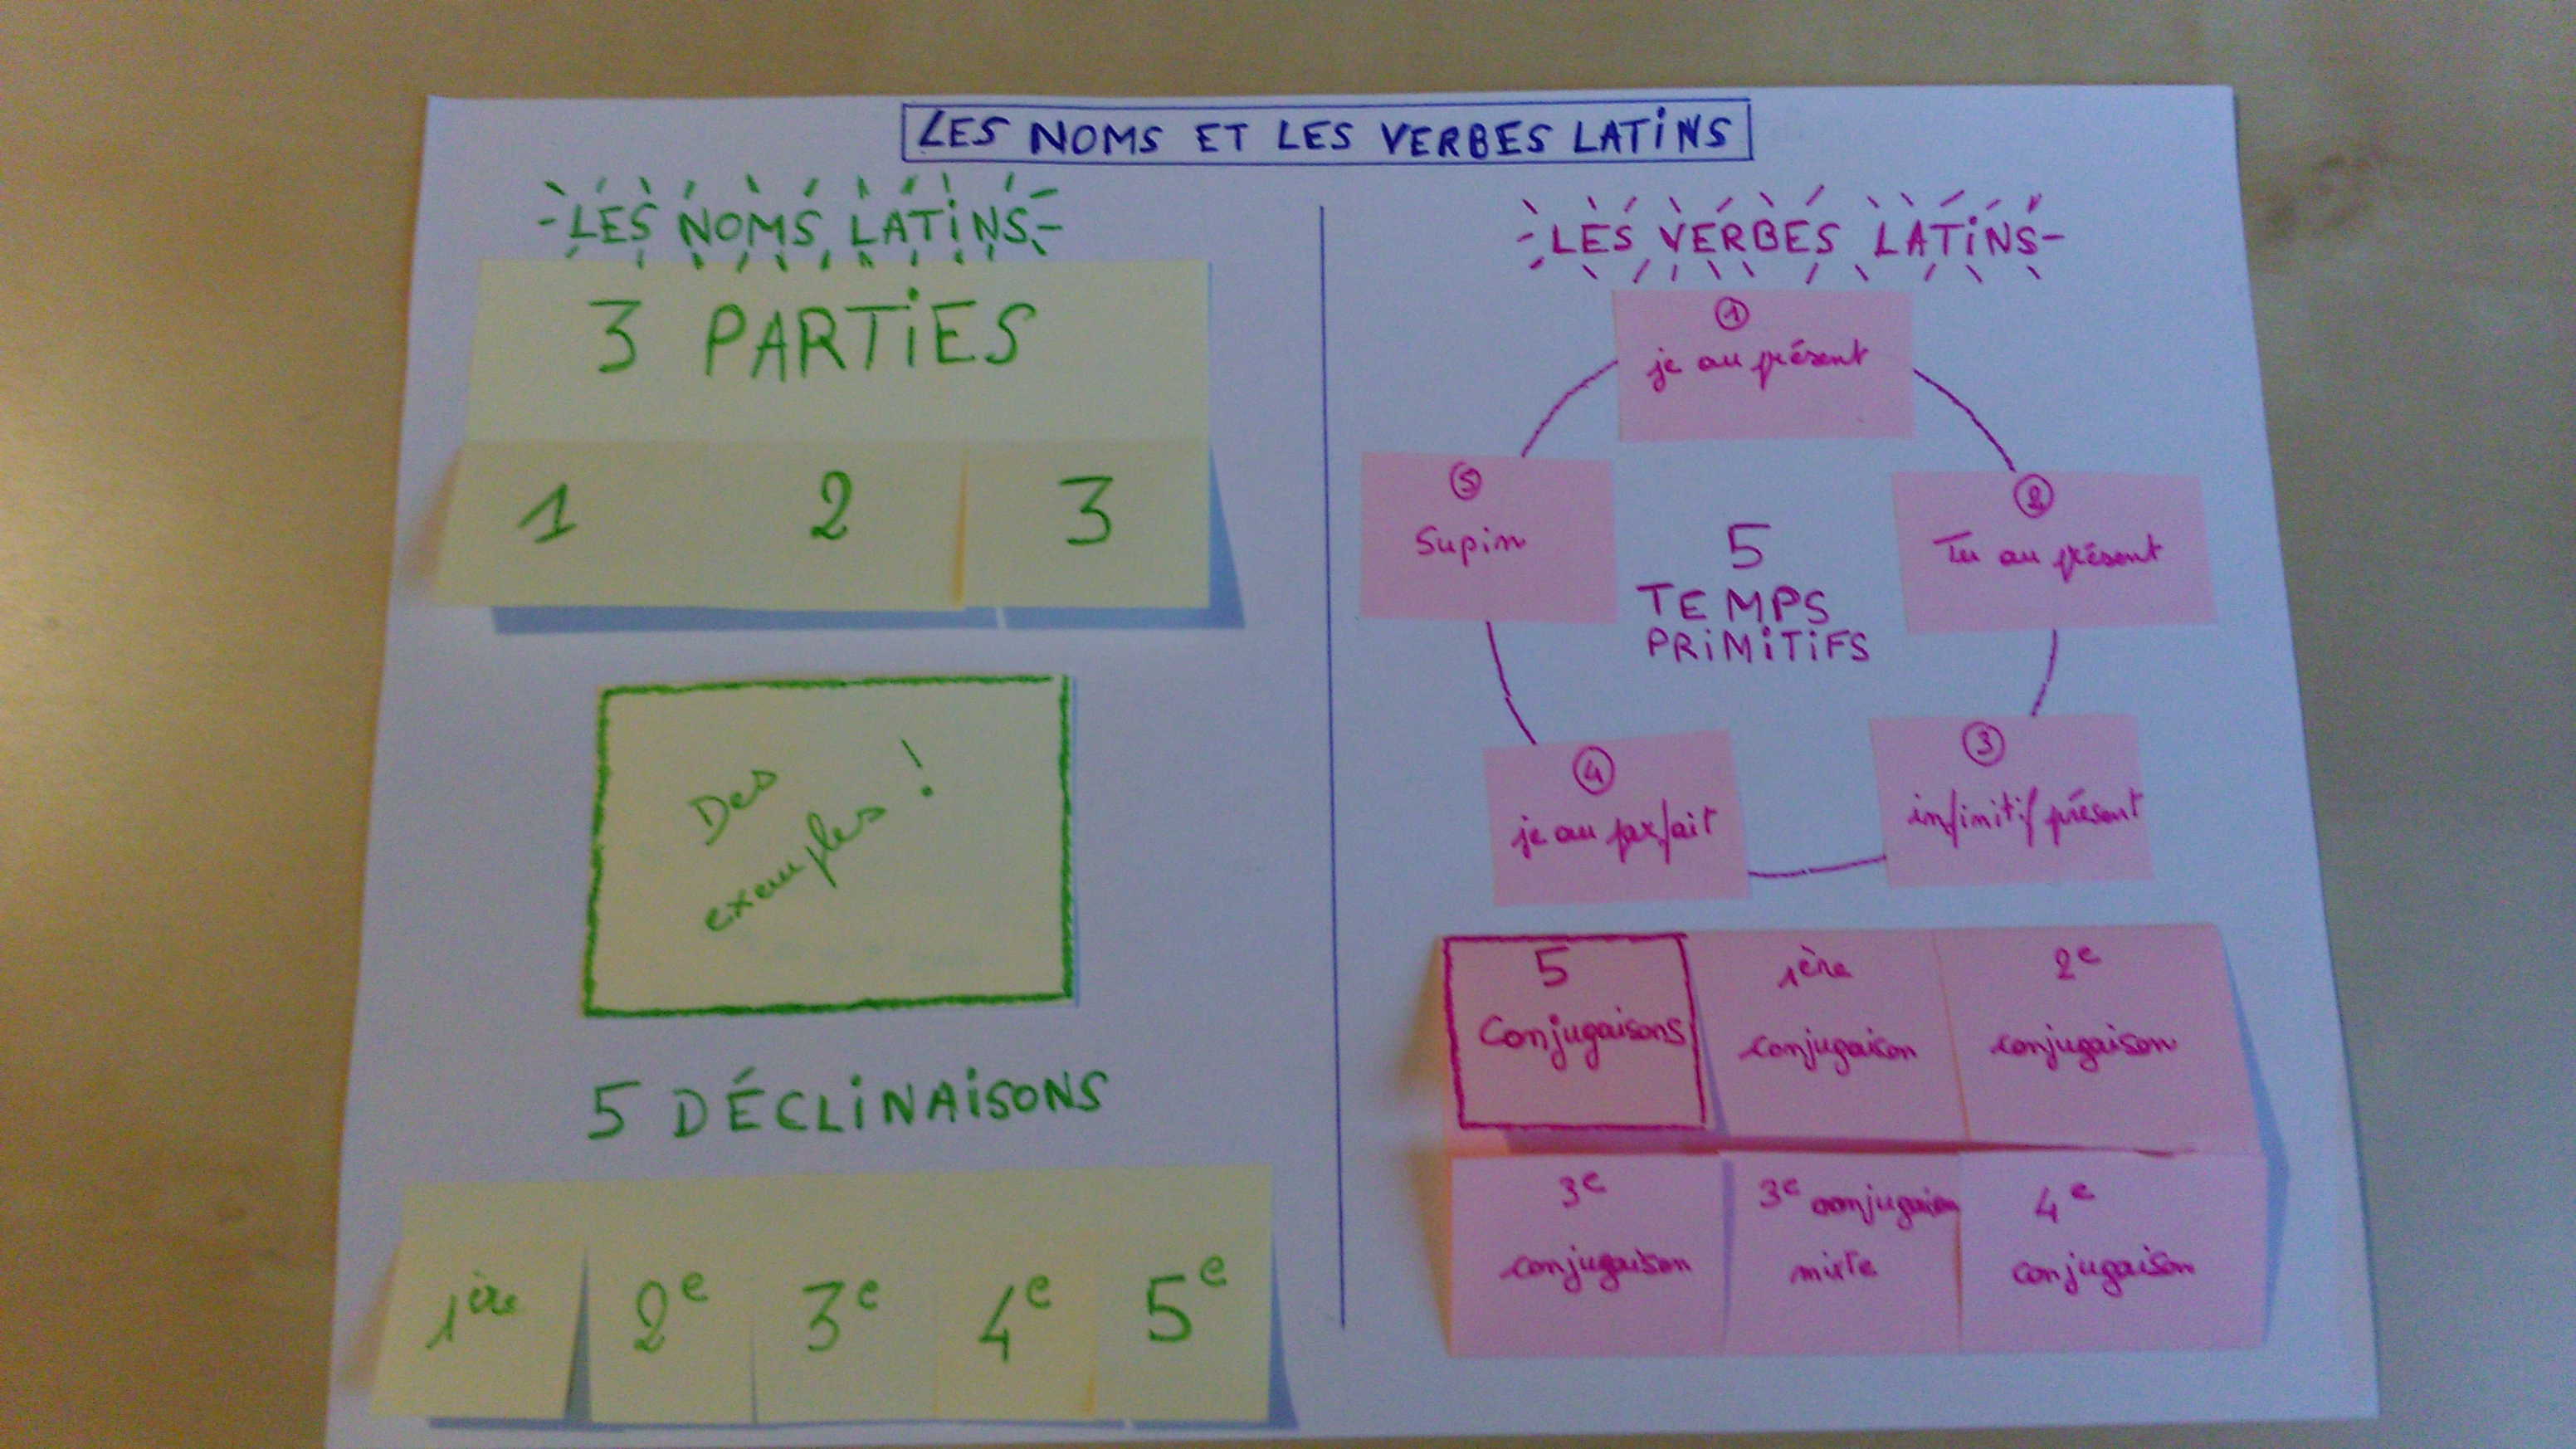 LES NOMS ET LES VERBES LATINS
LES NOMS LATINS
3 PARTIES
1 2 3
Des
exemples !
5 DÉCLINAISONS
1ère 2e 3e 4e 5e
LES VERBES LATINS
1
je au présent
2
Tu au présent
3
infinitif présent
4
je au parfait
5
Supin
5
TEMPS
PRIMITIFS
5
Conjugaisons
1ère
conjugaison
2e
conjugaison
3e
conjugaison
3e conjugaison
mixte
4e
conjugaison